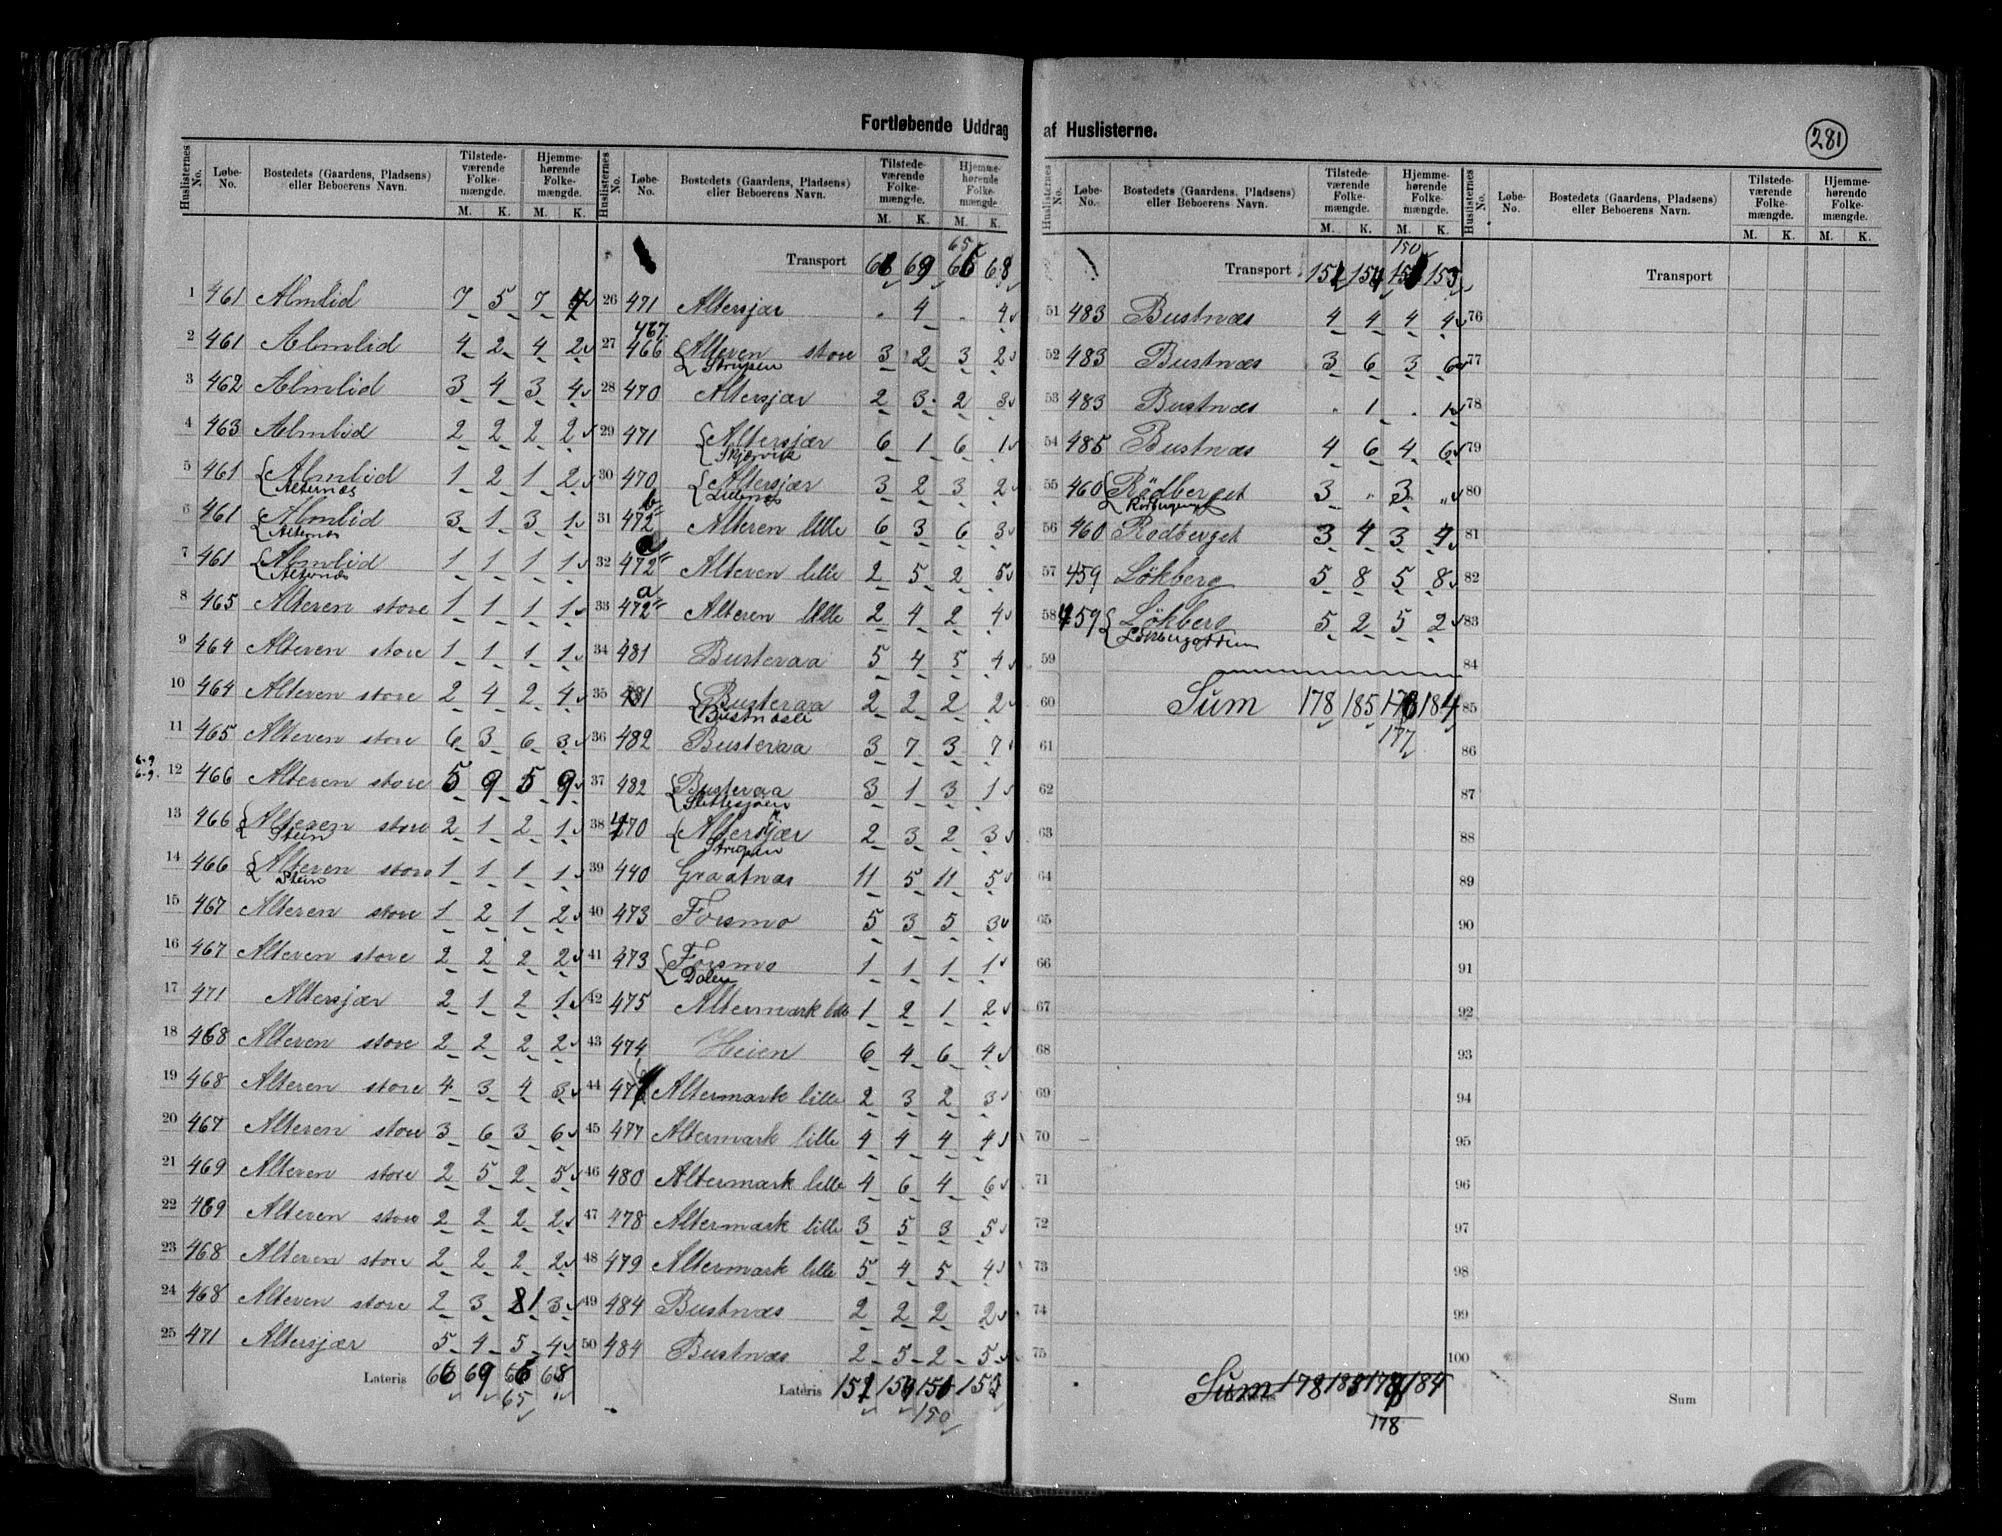 Fortløbende Uddrag af Huslisterne.
281
Huslisternes No. Løbe-No. Bostedets (Gaardens, Pladsens) eller Beboerens Navn. Tilstedeværende Folkemængde. M. K. Hjemmehørende Folkemængde. M. K.
1 461 Almlid 7 5 7 4
2 461 Almlid 4 2 4 2
3 462 Almlid 3 4 3 4
4 463 Almlid 2 2 2 2
5 461 Almlid 1 2 1 2
Alternæs
6 461 Almlid 3 1 3 1
Alternæs
7 461 Almlid 1 1 1 1
Alternæs
8 465 Alteren store 1 1 1 1
9 464 Alteren store 1 1 1 1
10 464 Alteren store 2 4 2 4
11 465 Alteren store 6 3 6 3
6-9
6-9.
12 466 Alteren store 5 9 5 9
13 466 Alteren store 2 1 2 1
Stein
14 466 Alteren store 1 1 1 1
Stein
15 467 Alteren store 1 2 1 2
16 467 Alteren store 2 2 2 2
17 471 Altersjær 2 1 2 1
18 468 Alteren store 2 2 2 2
19 468 Alteren store 4 3 4 3
20 467 Alteren store 3 6 3 6
21 469 Alteren store 2 5 2 5
22 469 Alteren store 2 2 2 2
23 468 Alteren store 2 2 2 2
24 468 Alteren store 2 3 1 3
25 471 Altersjær 5 4 5 4
Lateris 66 69 66 68
65
Huslisternes No. Løbe-No. Bostedets (Gaardens, Pladsens) eller Beboerens Navn. Tilstedeværende Folkemængde. M. K. Hjemmehørende Folkemængde M. K.
65
Transport 66 69 66 68
26 471 Altersjær . 4 . 4
467.
27 466 Alteren store 3 2 3 2
Strupen
28 470 Altersjær 2 3 2 3
29 471 Altersjær 6 1 6 1
Skjærvik
30 470 Altersjær 3 2 3 2
Lillenæs
b
31 472 Alteren lille 6 3 6 3
32 472 Alteren lille 2 5 2 5
a
33 472 Alteren lille 2 4 2 4
34 481 Busteraa 5 4 5 4
35 481 Busteraa 2 2 2 2
Bustnæsli
36 482 Busteraa 3 7 3 7
37 482 Busteraa 3 1 3 1
38 470 Altersjær 2 3 2 3
Strupen
39 440 Graatnæs 11 5 11 5
40 473 Forsmo 5 3 5 3
41 473 Forsmo 1 1 1 1
Dalen
42 475 Altermark lille 1 2 1 2
43 474 Heien 6 4 6 4
44 476 Altermark lille 2 3 2 3
45 477 Altermark lille 4 4 4 4
46 480 Altermark lille 4 6 4 6
47 478 Altermark lille 3 5 3 5
48 479 Altermark lille 5 4 5 4
49 484 Bustnæs 2 2 2 2
50 484 Bustnæs 2 5 2 5
Lateris 151 154 151 153
150
Huslisternes No. Løbe-No. Bostedets (Gaardens, Pladsens) eller Beboerens Navn. Tilstedeværende Folkemængde. M. K. Hjemmehørende Folkemængde. M. K.
150
Transport 151 154 151 153
51 483 Bustnæs 4 4 4 4
52 483 Bustnæs 3 6 3 6
53 483 Bustnæs . 1 . 1
54 485 Bustnæs 4 6 4 6
55 460 Rödberget 3 " 3 "
56 460 Rödberget 3 4 3 4
57 459 Lökberg 5 8 5 8
58 459 Lökberg 5 2 5 2
59
60 Sum 178 185 178 184
61 177
62
63
64
65
66
67
68
69
70
71
72
73
74
75
Sum 178 185 178 184
178
Huslisternes No. Løbe-No. Bostedets (Gaardens, Pladsens) eller Beboerens Navn. Tilstedeværende Folkemængde. M. K. Hjemmehørende Folkemængde M. K.
Transport
76
77
78
79
80
81
82
83
84
85
86
87
88
89
90
91
92
93
94
95
96
97
98
99
100
Sum